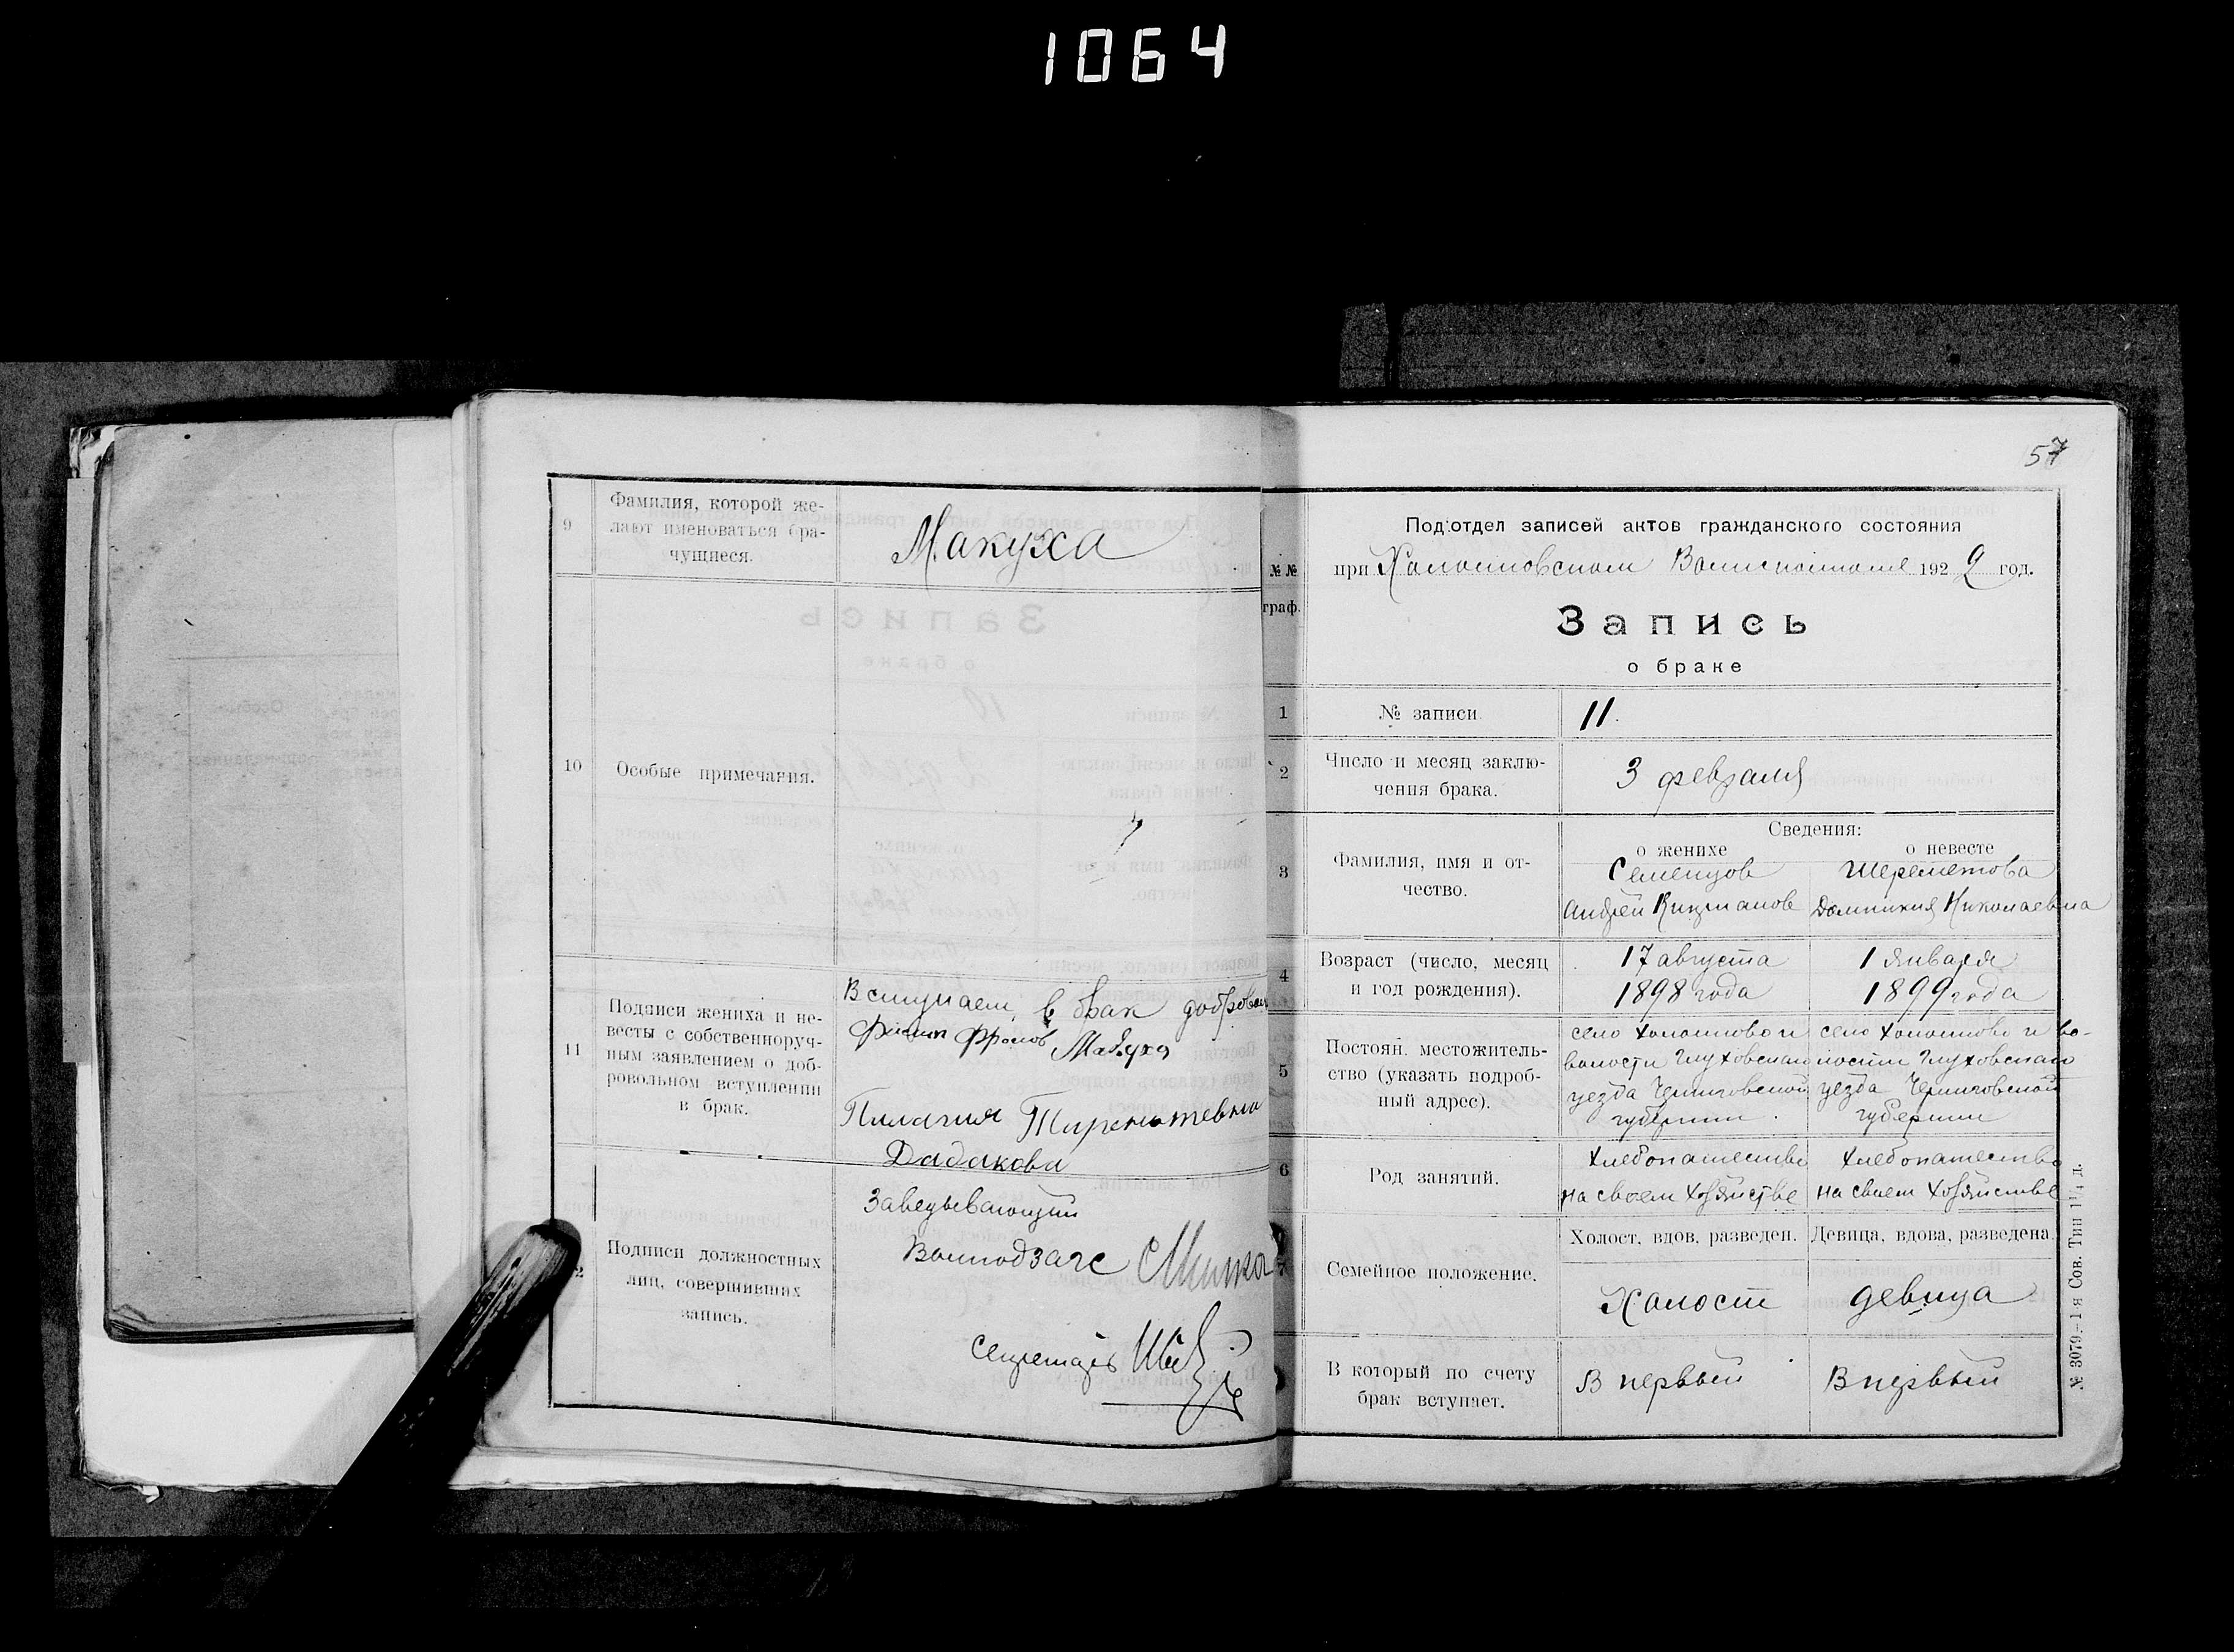 1064
9
Фамилия, которой же-
лают именоваться бра-
чущиеся.
Макуха
10
Особые примечания.
11
Подписи жениха и не-
весты с собственноруч-
ным заявлением о доб-
ровольном вступлении
в брак.
Вступаем в брак добровол
Макуха
Дадакова
2
Подписи должностных
лиц, совершивших
запись.
Заведывающий
Волподзагс
Секретарь
57
Подотдел записей актов гражданского состояния
при 1922 год.
№№
граф.
Запись
о браке
1
№ записи
11.
2
Число и месяц заклю-
чения брака.
3 февраля
3
Фамилия, имя и от-
чество.
Сведения:
о женихе
о невесте
Семенцов
Андрей
Шереметова
Домникия Николаевна
4
Возраст (число, месяц
и год рождения).
17 августа
1898 года
1 января
1899 года
5
Постоян. местожитель-
ство (указать подроб-
ный адрес).
село
волости Глуховскаго
уезда Черниговской
губернии
село во-
лости Глуховскаго
уезда Черниговской
губернии
6
Род занятий.
Хлебопашество
на своем хозяйстве
Хлебопашество
на своем хозяйстве
7
Семейное положение.
Холост, вдов, разведен.
Девица, вдова, разведена.
Холост
девица
В который по счету
брак вступает.
В первый
В первый
№ 3079.—1-я Сов. Тип